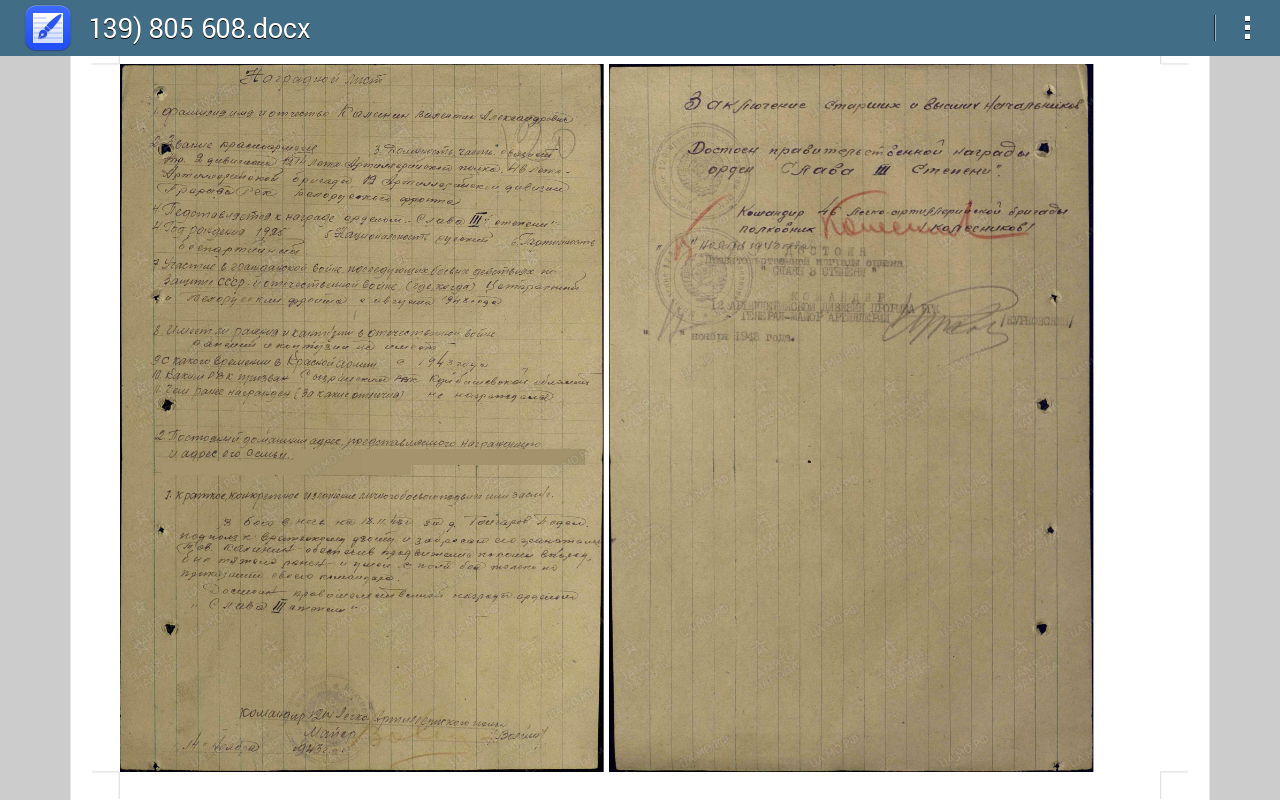 139) 805 608.docx
Наградной лист
1. Фамилия имя и отчество Калинин Валентин Александрович
2. Звание красноармеец 3. Должность, часть
тр. 2 дивизиона Артиллерийского полка, 46 Легко-
Артиллерийской бригады 12 Артиллерийской дивизии
Прорыва РГК Белорусского фронта
4. Педставляется к награде орденом "Слава III степени"
4. Год рождения 1925 5. Национальность русский 6. Партийность
беспартийный
7. Участие в гражданской войне, последующих боевых действиях по
защите СССР и отечественной войне (где, когда) Центральный
и Белорусский фронта с августа
8. Имеет ли ранения и контузии в отечественной войне
ранений и контузии не имеет
9. С какого времени в Красной армии с 1943 года
10. Каким РВК призван Сызранским РВК Куйбышевской области
11. Чем ранее награжден (за какие отличия) не награждался
2. Постоянный домашний адрес, представляемого к награждению
и адрес его семьи.
1. Краткое, конкретное изложение личного боевого подвига или заслуг.
В бою в ночь на 12.11.43г за д.
подполз к вражескому дзоту и забросал его гранатами
Тов. Калинин обеспечив продвижение пехоты вперед,
был тяжело ранен и ушел с поля боя только по
приказанию своего командира.
Достоин правительственной награды орденом
"Слава III степени"
Командир Легко Артиллерийского полка
Майор
14 Ноября 1943 года
Заключение старших и высших начальников
Достоен правительственной награды
орден "Слава III Степени".
Командир 46 легко-артиллерийской бригады
полковник /Колесников/
" " ноября 1943 года
ДОСТОИН
Правительственной награды ордена
" СЛАВЫ 3 СТЕПЕНИ "
КОМАНДИР
12 АРТИЛЛЕРИЙСКОЙ ДИВИЗИИ ПРОРЫВА РГК
ГЕНЕРАЛ-МАЙОР АРТИЛЛЕРИИ /КУРКОВСКИЙ/
" " ноября 1943 года.